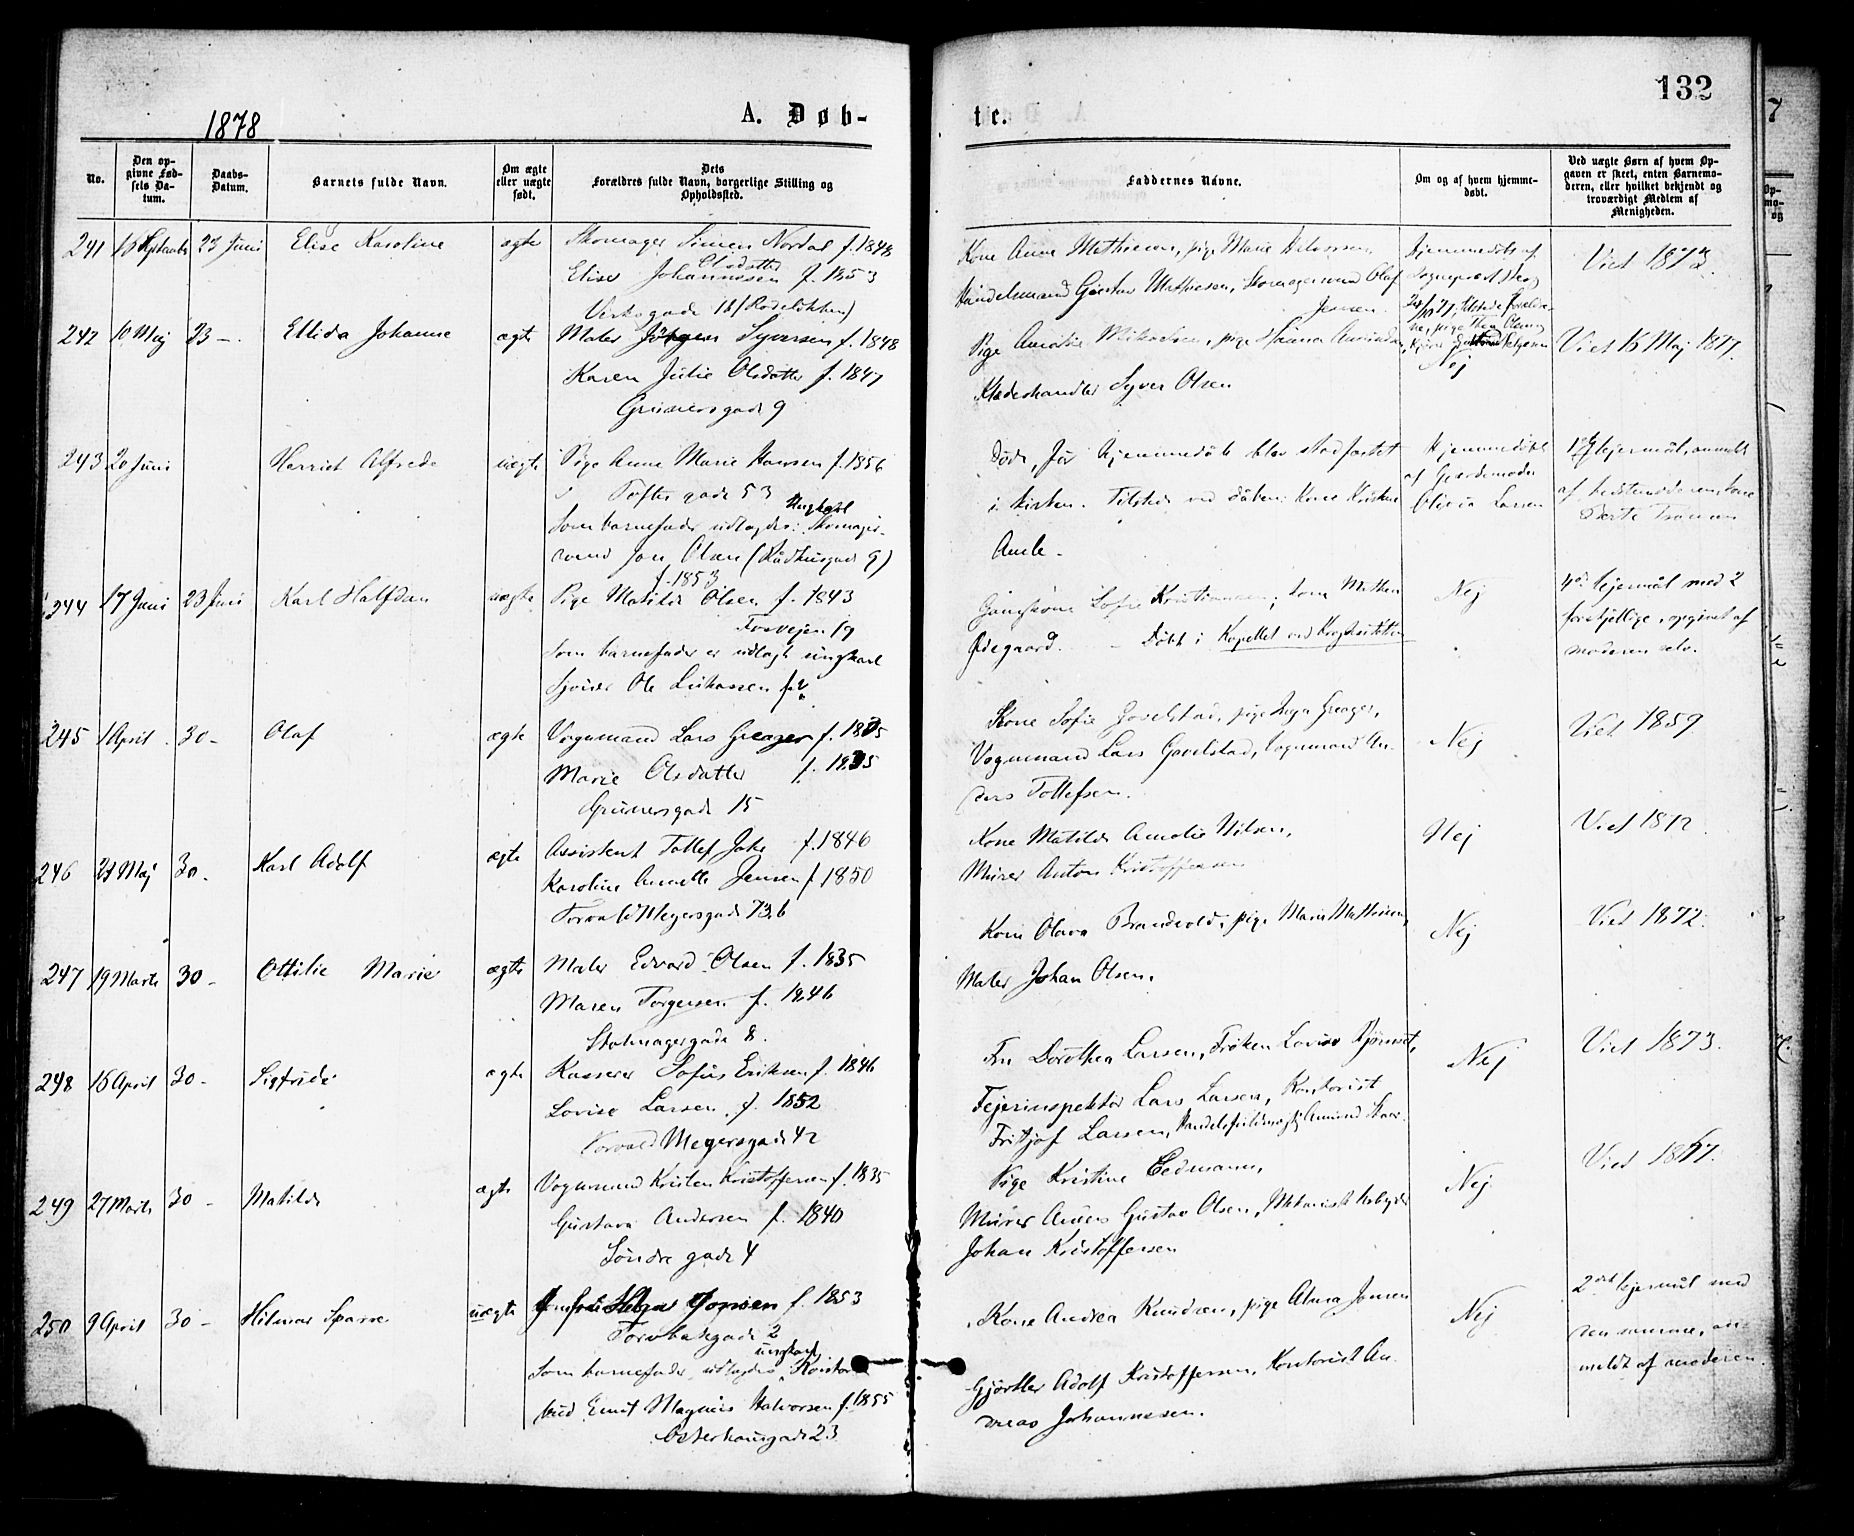 1878
A. Døb-
te.
132
No.
Den op-
givne Fød-
sels Da-
tum.
Daabs-
Datum.
Barnets fulde Navn.
Om ægte
eller uægte
født.
Dets
Forældres fulde Navn, borgerlige Stilling og
Opholdssted.
Faddernes Navne.
Om og af hvem hjemme-
døbt.
Ved uægte Børn af hvem Op-
gaven er skeet, enten Barnemo-
deren, eller hvilket bekjendt og
troværdigt Medlem af
Menigheden.
241 23 Juni Elise Karoline ægte Skomager Simen Nordal f. 1848
Elise Johannesen f. 1853
Olsdatter
Kone Anne Mathisen, pige Marie Halvorsen,
Handelsmand Gustav Mathisen, Skomagersvend Olaf
Jensen.
Hjemmedøbt af
Sognepræst
Viet 1873.
242 10 Maj 23 — Ellida Johanne ægte Maler Jörgen Syversen f. 1848
Karen Julie Olsdatter f. 1847
Grünersgade 9
Pige Amalie Mikaelsen, pige
Klædeshandler Syver Olsen
Nej
Viet 16 Maj 1877.
243 20 Juni Harriet Alfrede uægte Pige Anne Marie Hansen f. 1856
Toftes gade 53
Ungkarl
Som barnefader udlagdes: Skomager-
svend Jon Olsen (Rådhusgade 9)
Døde, før hjemmedåb blev stadfæstet
i kirken. Tilstede ved dåben: Kone Kristine
Aule.
Hjemmedøbt
af Gjordemoder
Olivia Larsen
1ste lejermål, anmeldt
af bedstemoderen, kone
244 17 Juni 23 Juni Karl Halfdan uægte Pige Matilde Olsen f. 1843
f. 1853
Fossvejen 19
Som barnefader er udlagt ungkarl
Ole Lukassen f. ?
Gangkone Sofie Kristiansen, Tom Mathea
Ødegaard. - Døbt i Kapellet ved Krogstøtten
Nej
4de lejermål med 2
forskjellige, opgivet af
moderen selv.
245 1 April 30 - Olaf ægte Vognmand Lars Greager f. 1835
Marie Olsdatter f. 1835
Grünersgade 15
Kone Sofie Gavelstad, pige Inga Greager,
Vognmand Lars Gavelstad, Vognmand An-
ders Tollefsen.
Nej
Viet 1859
246 Maj 30 - Karl Adolf ægte Assistent Tollef Jahr f. 1846
Karoline Annette Jensen f. 1850
Torvald Meyersgade 73.b
Kone Matilde Amalie Nilsen,
Murer Anton Kristoffersen
Nej
Viet 1872
247 19 Marts 30 - Ottilie Marie ægte Maler Edvard Olsen f. 1835
Maren Torgersen f. 1846
Stolmagergade 8.
Kone Olava Brandvold, pige Marie Mathisen,
Maler Johan Olsen.
Nej
Viet 1872.
248 16 April 30 - Sigfride ægte Kasserer Sofus Eriksen f. 1846
Lovise Larsen f. 1852
Torvald Meyersgade 42
Fru Dorothea Larsen, Frøken Lovise
Fejerinspektør Lars Larsen, Kontorist
Fritjof Larsen, Handelsfuldmægtig Amund
Nej
Viet 1873.
249 27 Marts 30 - Matilde ægte Vognmand Kristen Kristoffersen f. 1835
Gustava Andersen f. 1840
Søndre gade 4
Pige Kristine Cedmann,
Murer Anders Gustav Olsen, Mekanisk Arbejder
Johan Kristoffersen
Nej
Viet 1867.
250 9 April 30 - Hilmar Sparre uægte Jomfru Helga Jonsen f. 1853
Torvbakgade 2
ungkarl
Som barnefader udlagdes Kontor-
bud Emil Magnus Halvorsen f. 1855
Osterhausgade 23
Kone Andrea Knudsen, pige Alma Jonsen
Gjørtler Adolf Kristoffersen, Kontorist An-
dreas Johannessen.
Nej
2det lejermål med
den samme, an-
meldt af moderen.